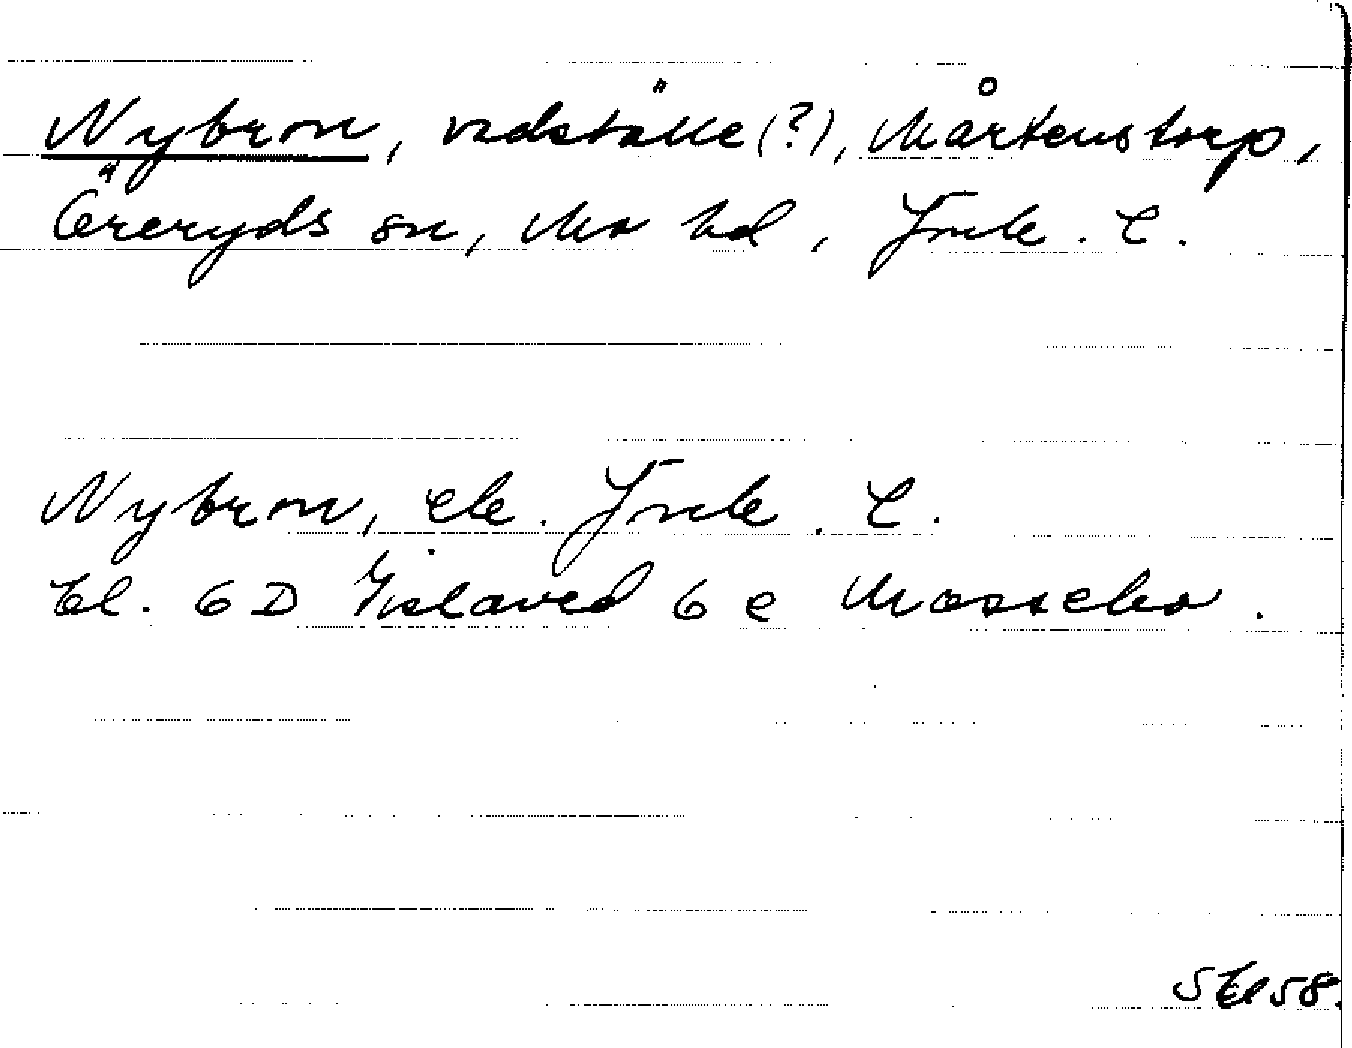 Nybron, vadställe(?), Mårtenstorp,
Öreryds sn, Mo hd, Jmk. l.
Nybron, ek. Jmk. l.
bl. 6D Gislaved 6 e Mossebo.